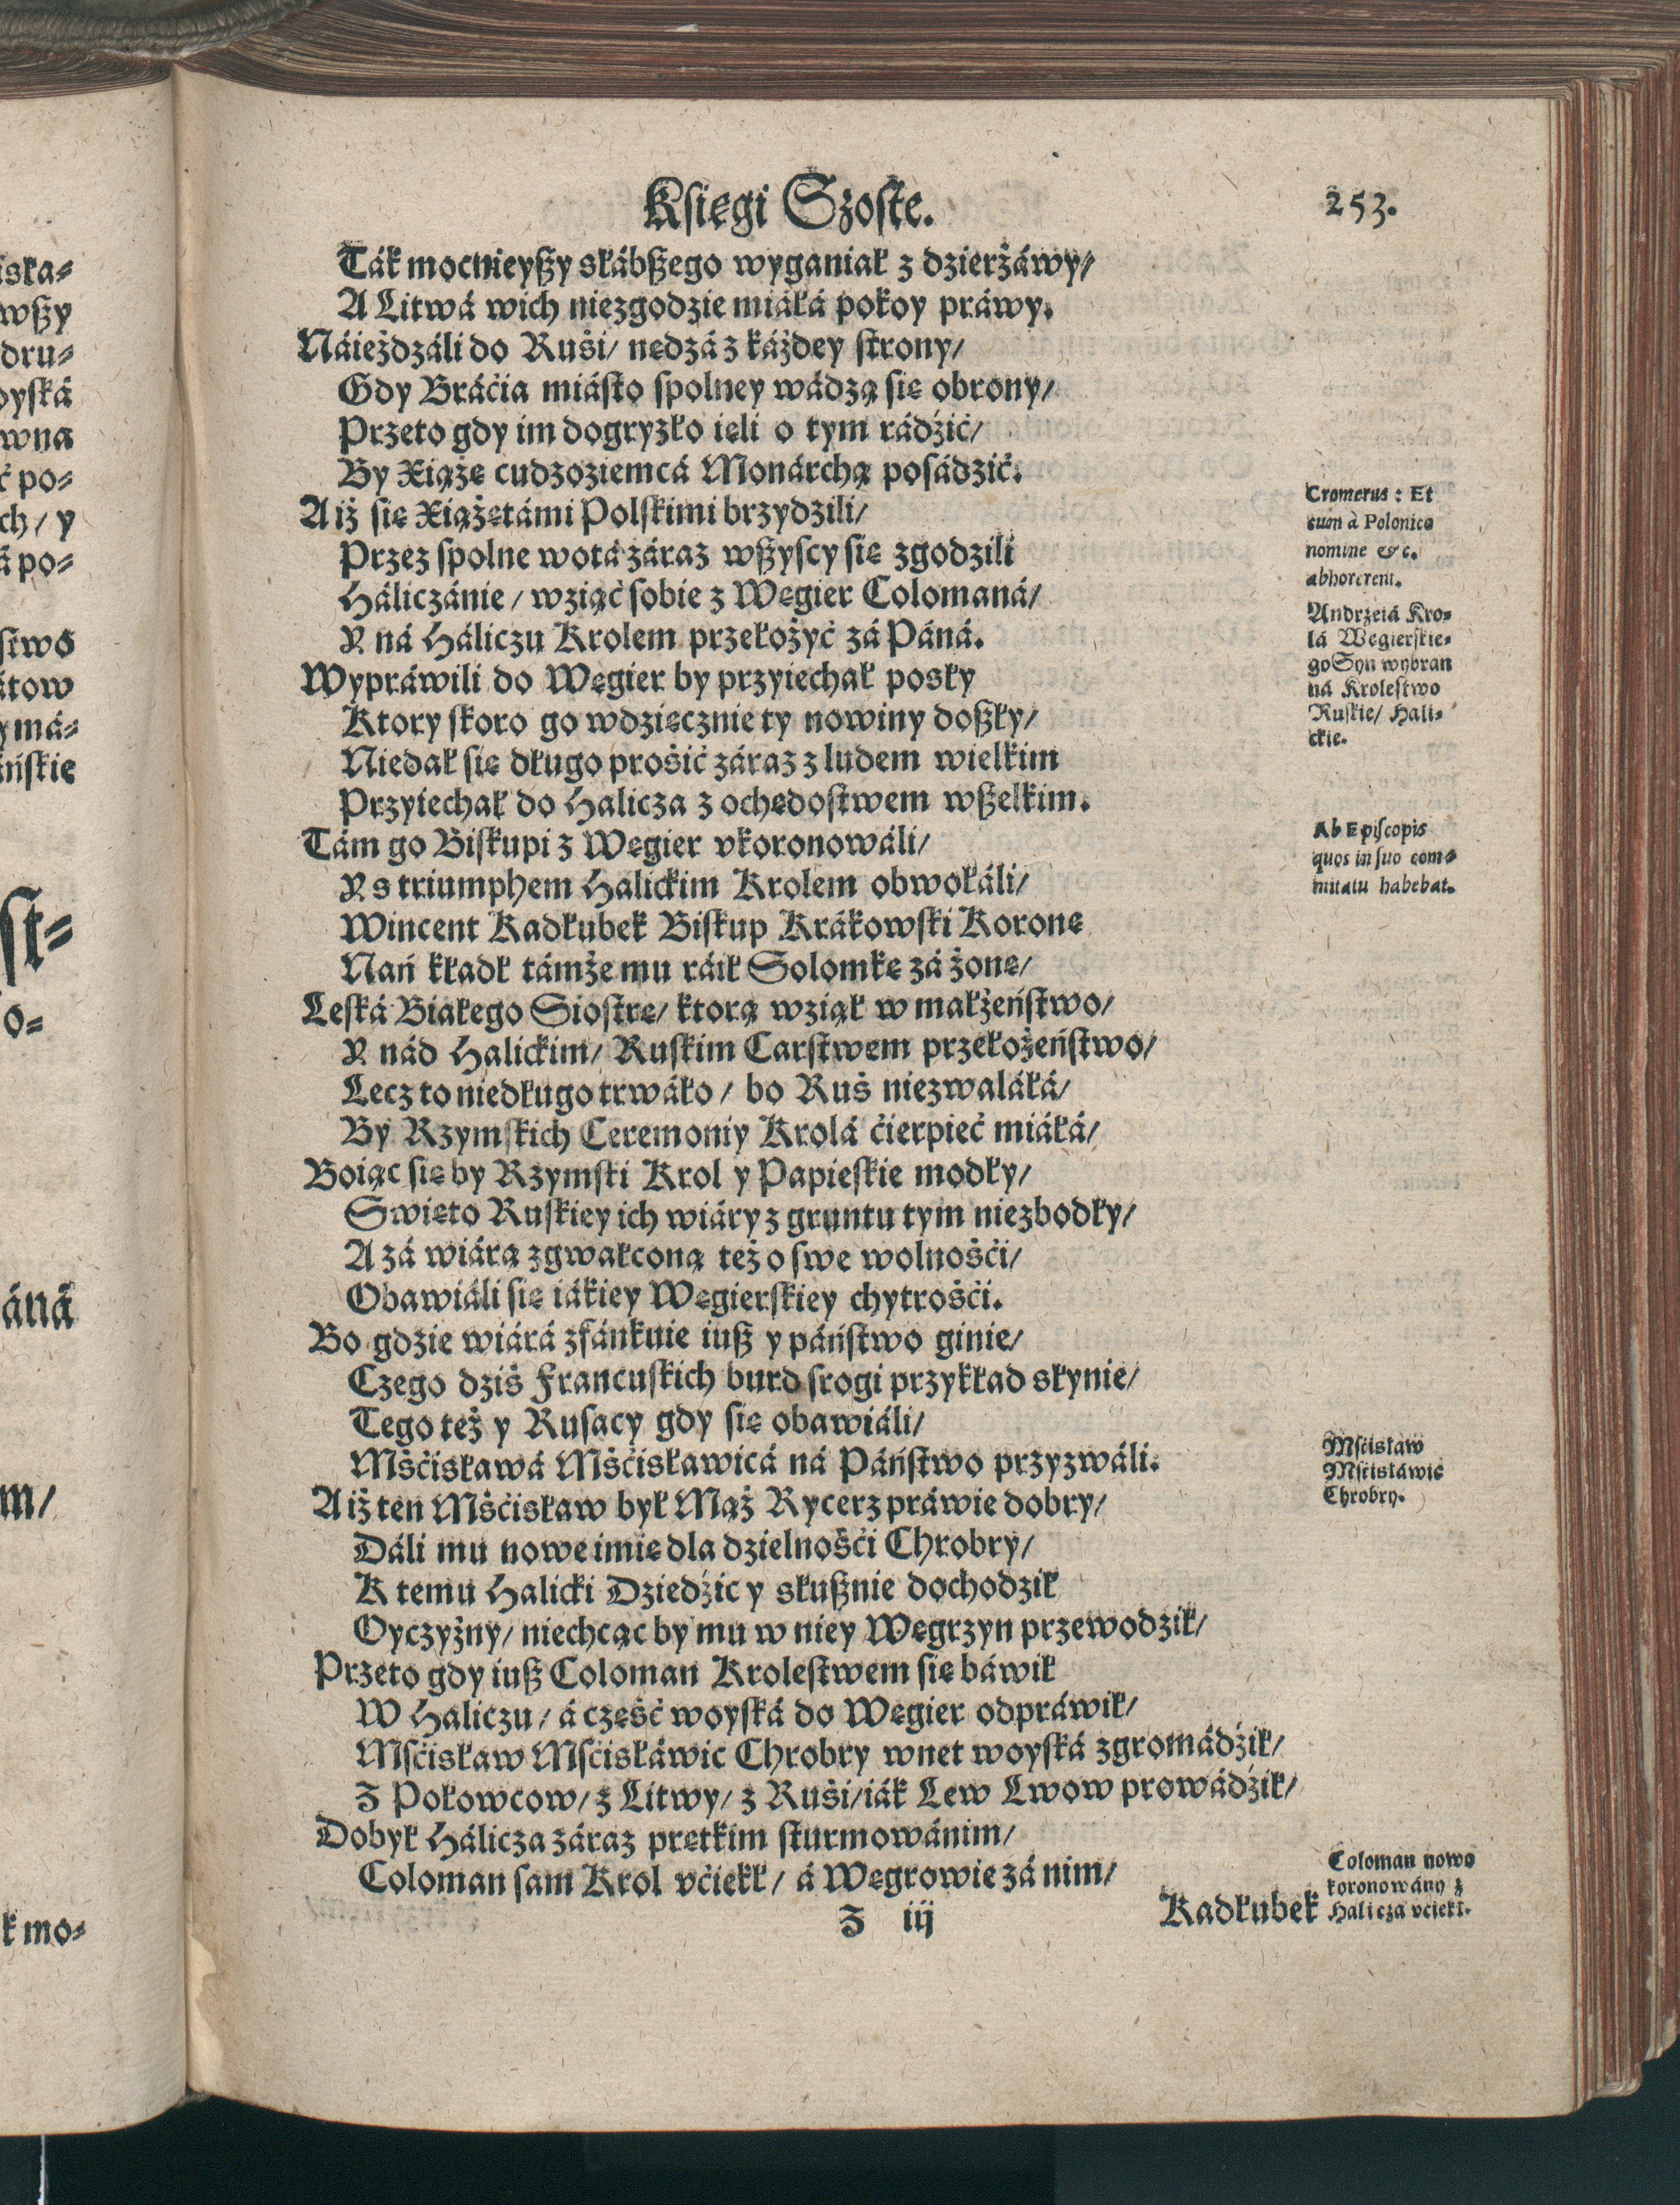 Księgi Szoste.
253.
Ták mocnieyßy słábßego wyganiał z dzierżáwy/
A Litwá wich niezgodzie miáłá pokoy práwy.
Náieżdżáli do Ruśi/ nędzá z káżdey strony/
Gdy Bráćia miásto spolney wádzą się obrony/
Przeto gdy im dogryzło ięli o tym rádźić/
By Xiążę cudzoziemcá Monárchą posádzić.
A iż się Xiążętámi Polskimi brzydzili/
Przez spolne wotá záraz wßyscy się zgodzili
Háliczánie/ wziąć sobie z Węgier Colomaná/
Y ná Háliczu Krolem przełożyć zá Páná.
Wypráwili do Węgier by przyiechał posły
Ktory skoro go wdzięcznie ty nowiny doßły/
Niedał się długo prośić záraz z ludem wielkim
Przyiechał do Halicza z ochędostwem wßelkim.
Tám go Biskupi z Węgier vkoronowáli/
Y s triumphem Halickim Krolem obwołáli/
Wincent Kadłubek Biskup Krákowski Koronę
Nań kładł támże mu ráił Solomkę zá żonę/
Leská Białego Siostrę/ ktorą wziął w małżeństwo/
Y nád Halickim/ Ruskim Carstwem przełożeństwo/
Lecz to niedługo trwáło/ bo Ruś niezwaláłá/
By Rzymskich Ceremoniy Krolá ćierpieć miáłá/
Boiąc się by Rzymski Krol y Papieskie modły/
Swięto Ruskiey ich wiáry z gruntu tym niezbodły/
A zá wiárą zgwałconą też o swe wolnośći/
Obawiáli się iákiey Węgierskiey chytrośći.
Bo gdzie wiárá zfánkuie iuß y páństwo ginie/
Czego dziś Francuskich burd srogi przykład słynie/
Tego też y Rusacy gdy się obawiáli/
Mśćisławá Mśćisławicá ná Páństwo przyzwáli.
A iż ten Mśćisław był Mąż Rycerz práwie dobry/
Dáli mu nowe imię dla dzielnośći Chrobry/
K temu Halicki Dziedźic y słußnie dochodził
Oyczyżny/ niechcąc by mu w niey Węgrzyn przewodził/
Przeto gdy iuß Coloman Krolestwem się báwił
W Haliczu/ á część woyská do Węgier odpráwił/
Msćisław Msćisłáwic Chrobry wnet woyská zgromádźił/
Z Połowcow/ z Litwy/ z Ruśi/ iák Lew Lwow prowádźił/
Dobył Hálicza záraz prętkim szturmowánim/
Coloman sam Krol vćiekł/ á Węgrowie zá nim/
Z iij
Kadłubek
Cromerus: Et
cum à Polonico
nomine &c.
abhorerent.
Andrzeiá Kro-
lá Węgierskie-
go Syn wybran
ná Krolestwo
Ruskie/ Hali-
ckie.
Ab Episcopis
quos in suo com-
mitatu habebat.
Mśćisław
Mśćisłáwic
Chrobry.
Coloman nowo
koronowány z
Halicza vćiekł.
iska-
wßy
dru-
dyská
wna
ć po-
ch/ y
á po-
stwo
átow
y má-
ńskie
st-
o-
áná
m/
ł mo-